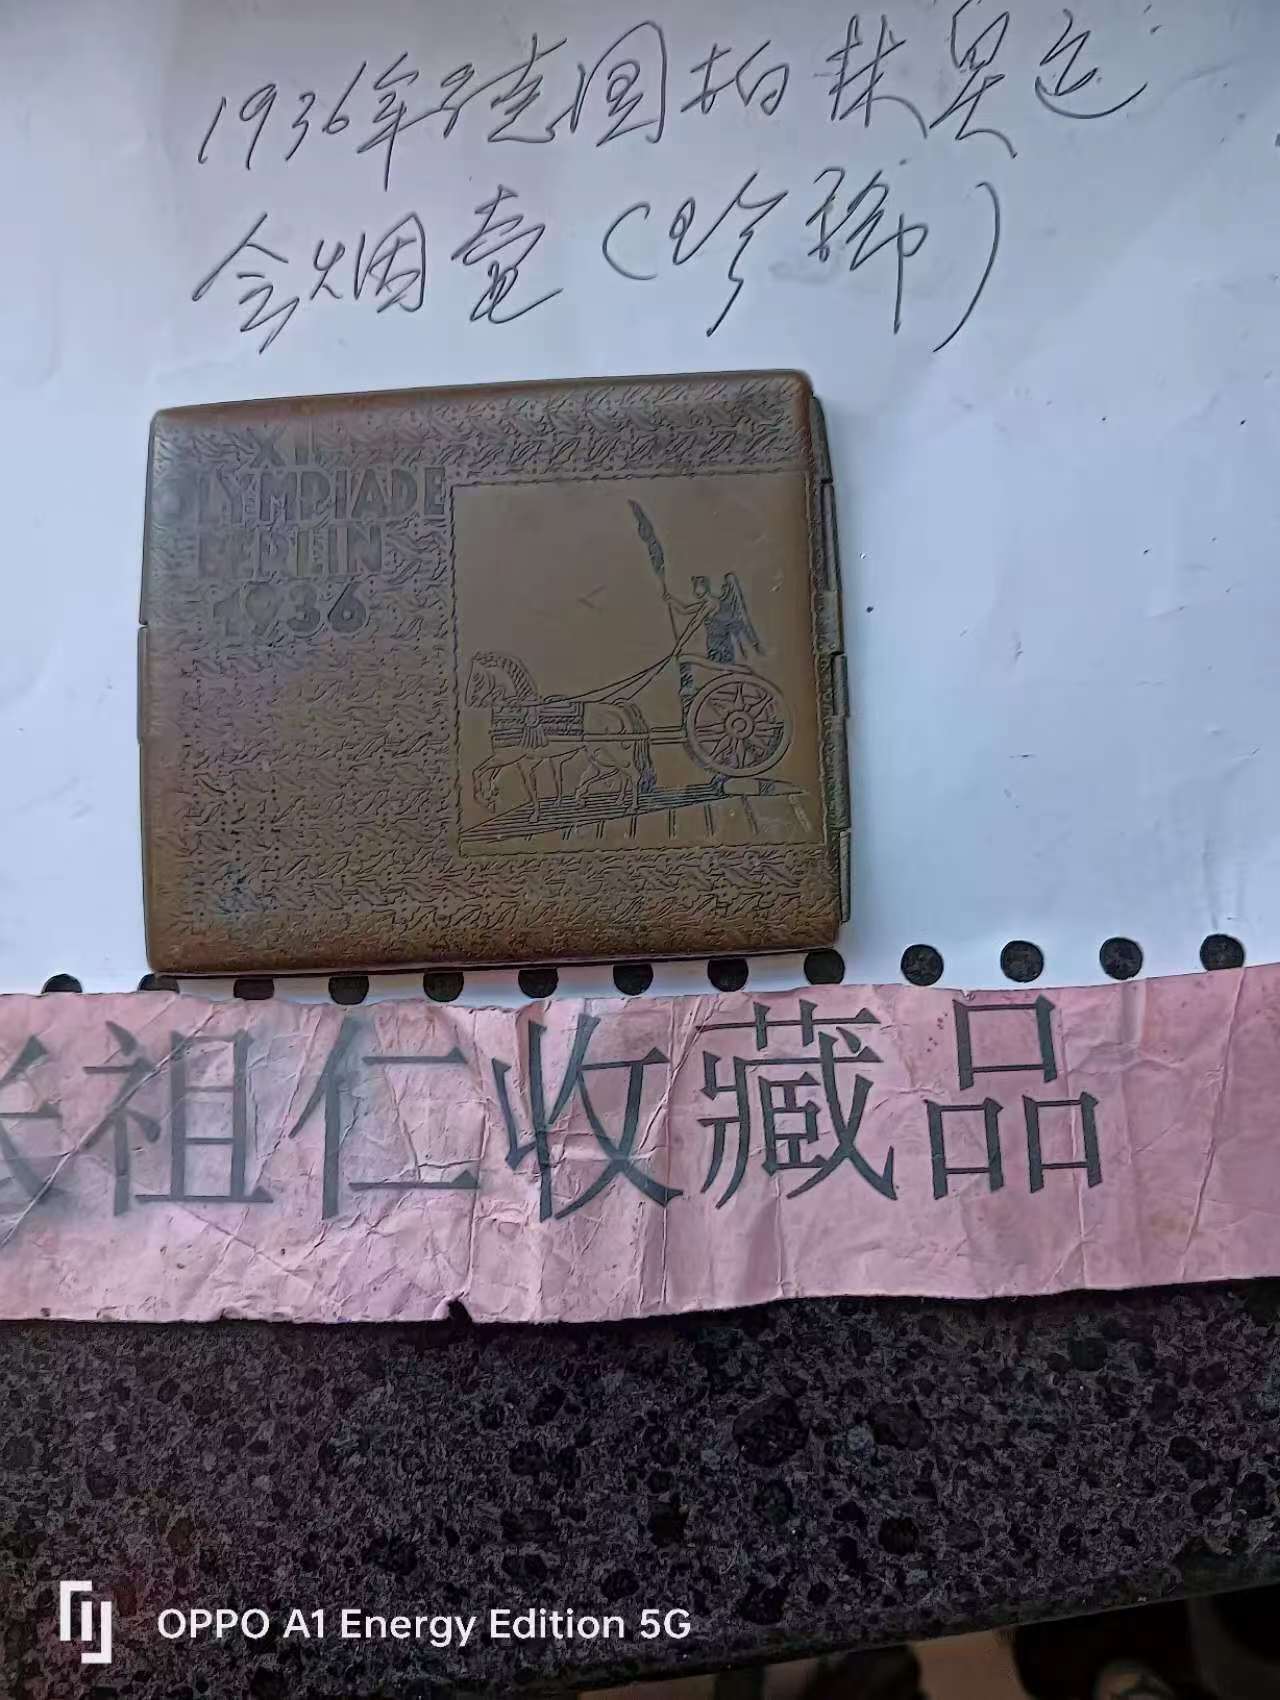 1936年德国柏林奥运
会烟壹（珍稀）
XI
OLYMPIADE
BERLIN
1936
张祖仁收藏品
OPPO A1 Energy Edition 5G